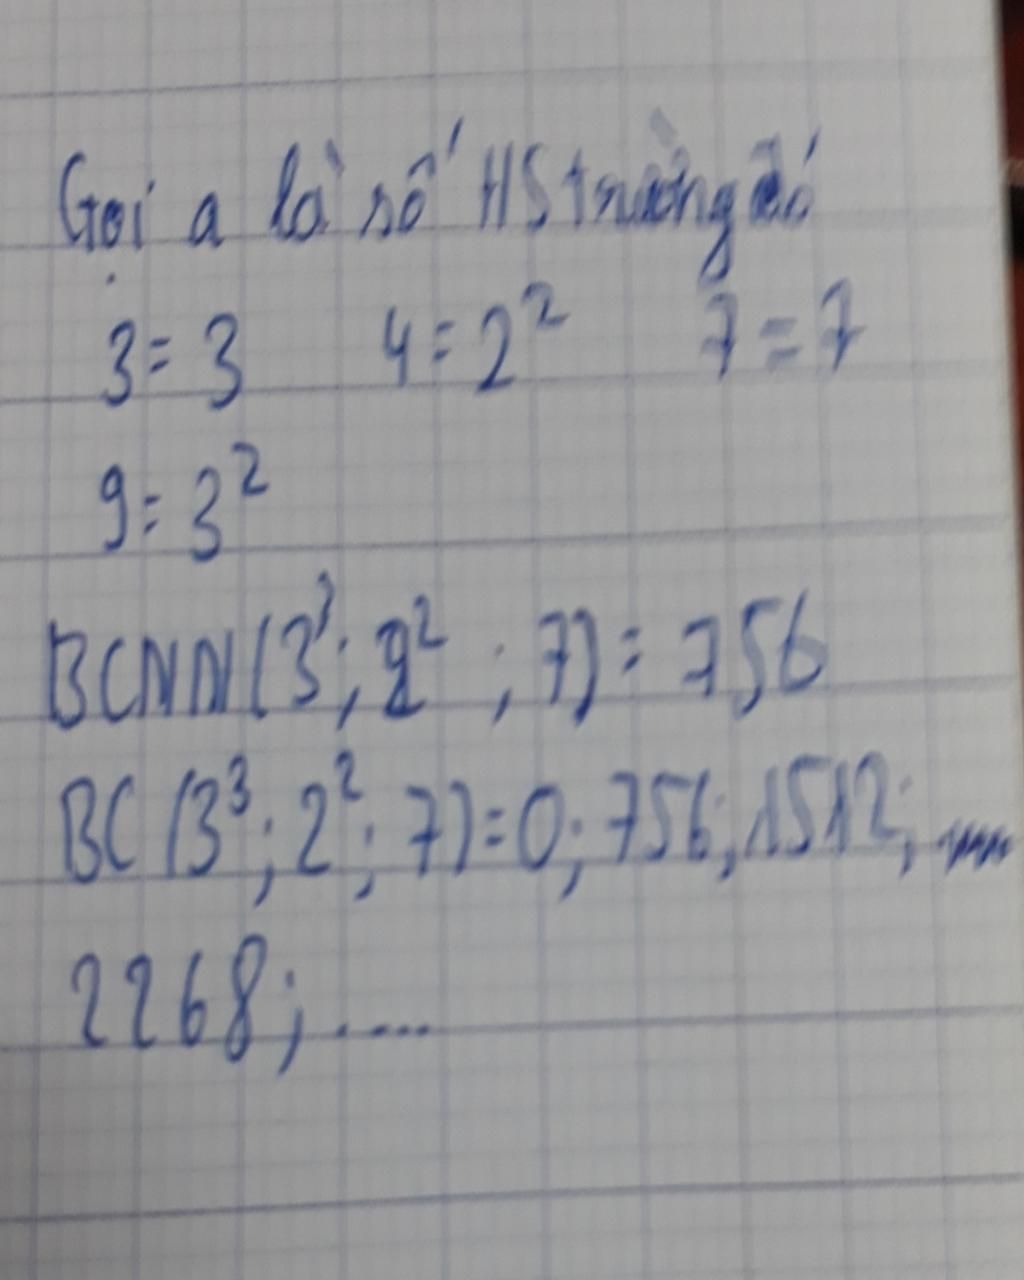 Gọi a là số HS trường đó
3 = 3 4 = 2² 7 = 7
9 = 3²
BCNN(3³; 2² ; 7) = 756
BC (3³; 2²; 7) = 0; 756; 1512;
2268; ....